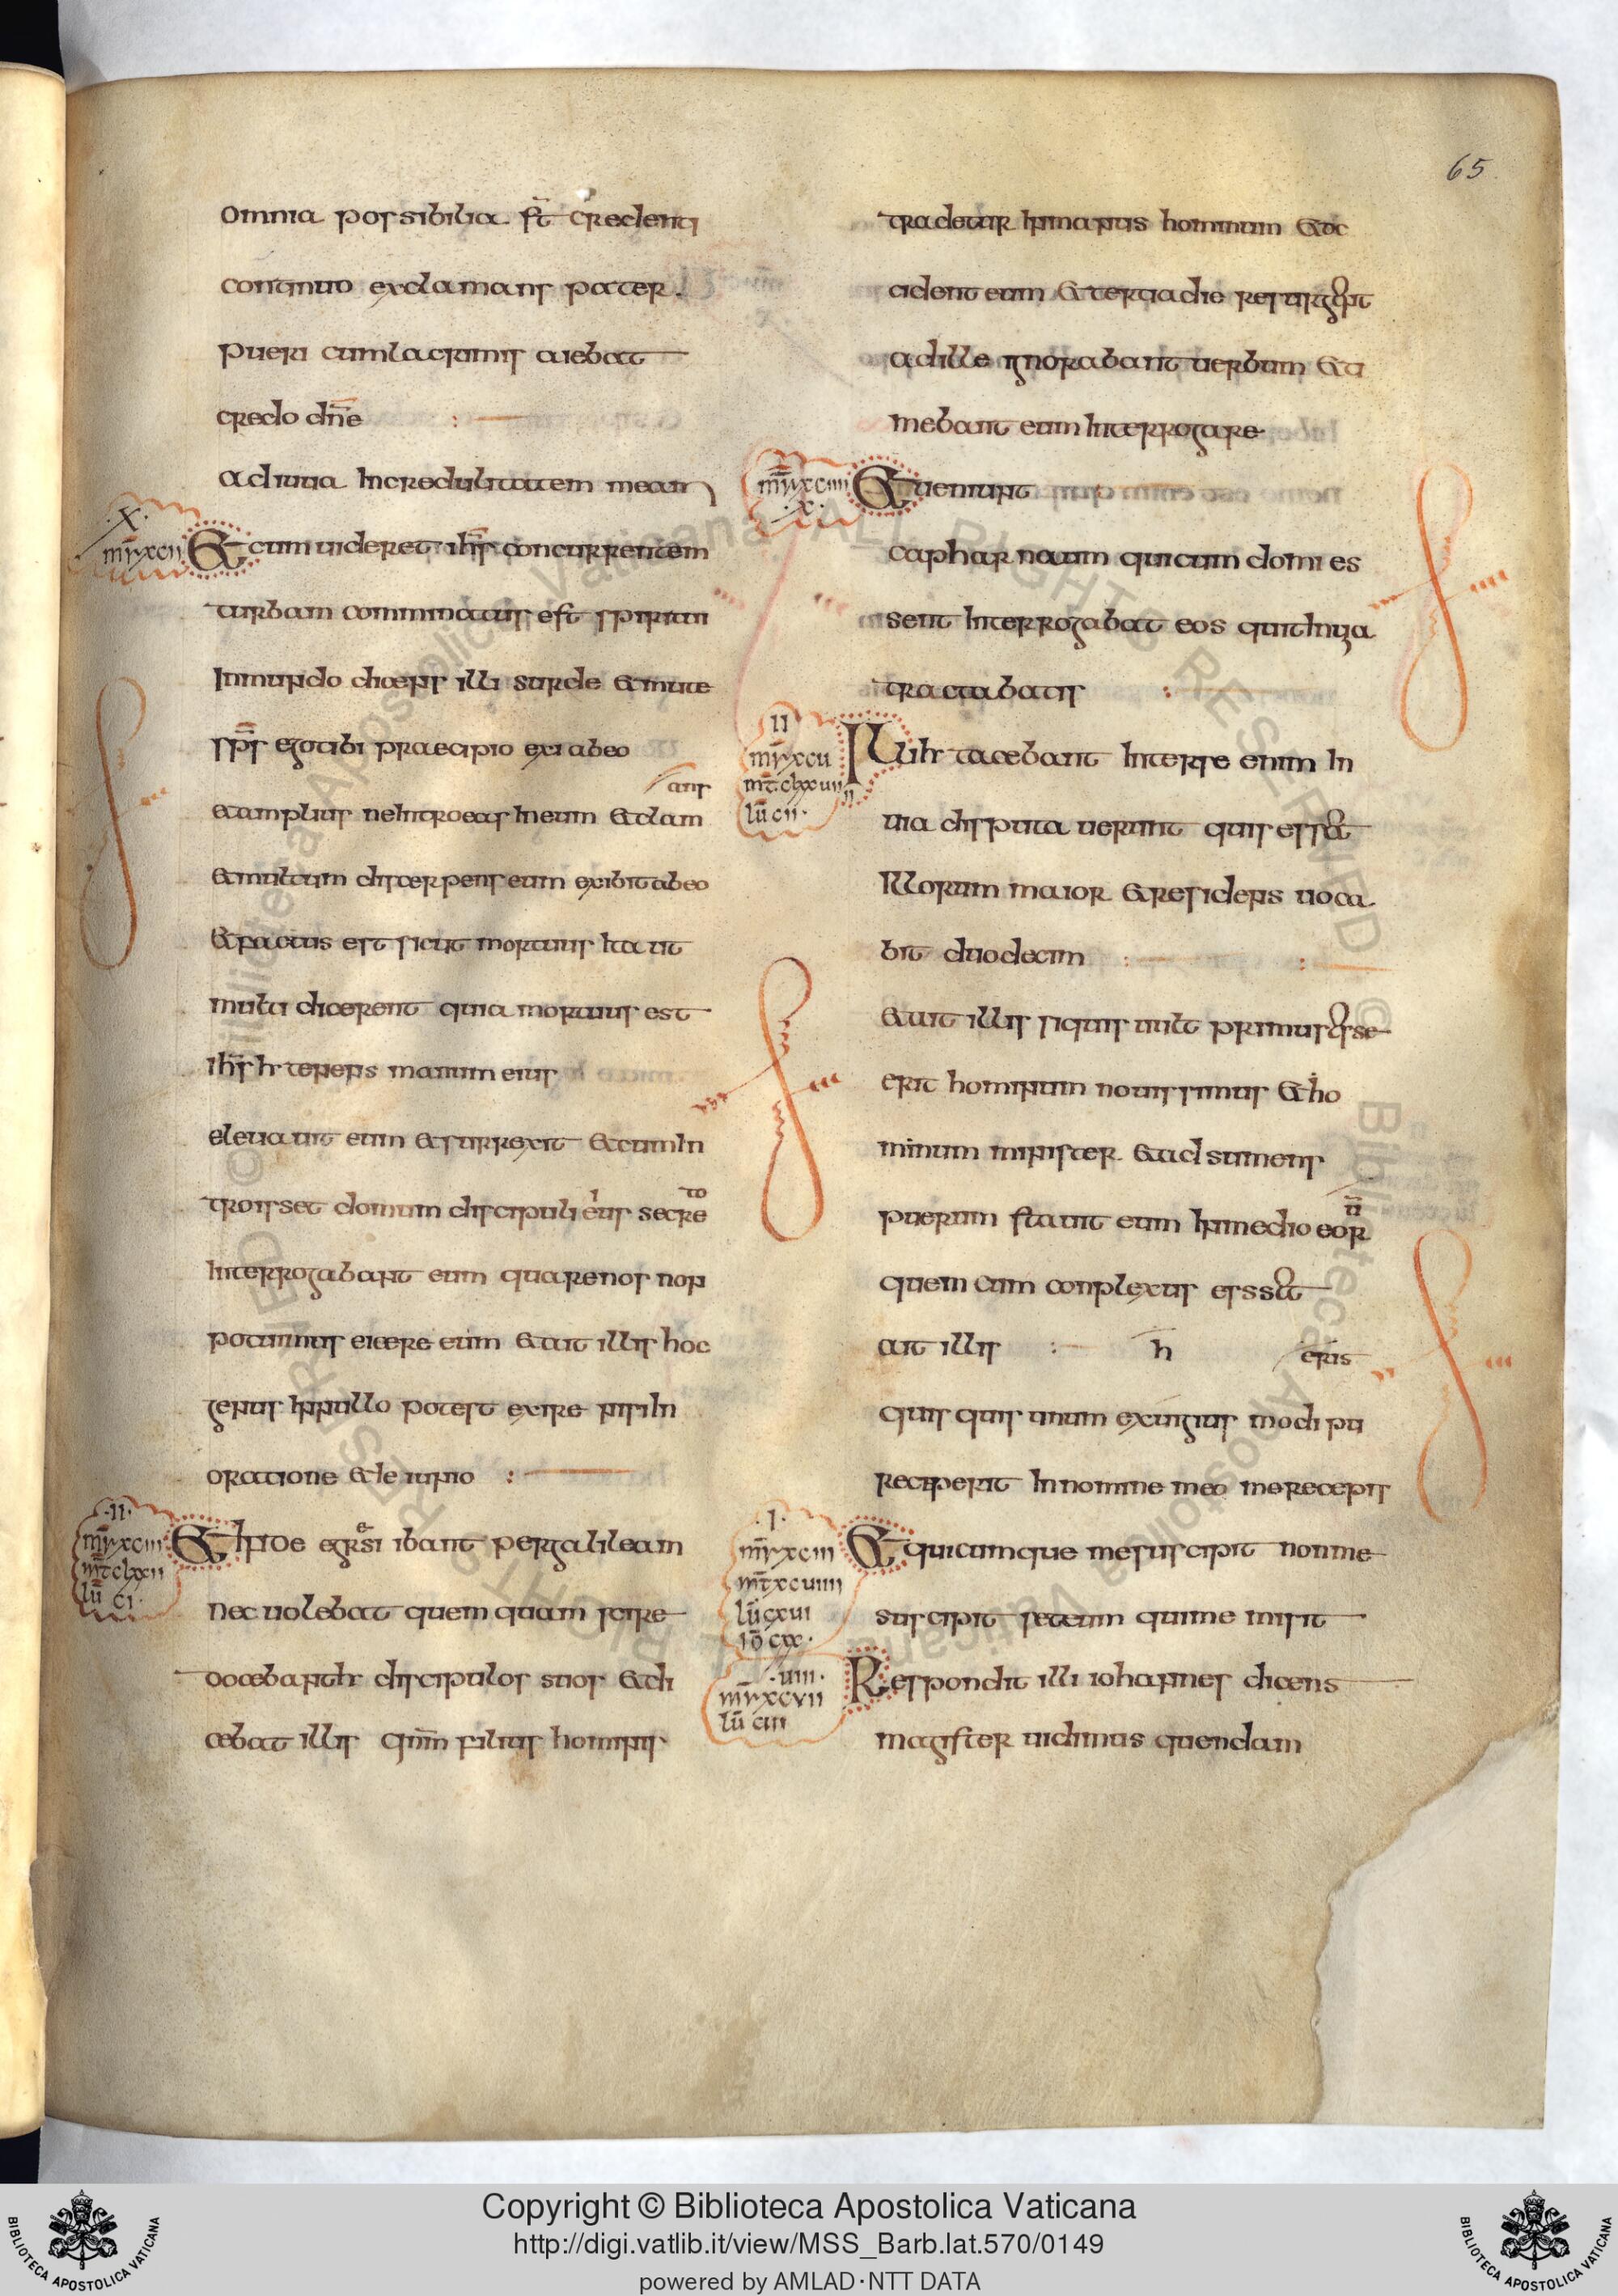 65.
omnia possibilia st̄ credenti
continuo exclamans pater.
pueri cum lacrimis aiebat
credo dn̄e
adiuua incredulitatem meam
·X·
mr̄ xcii
Et cum uideret ih̄s concurrentem
turbam comminatus est spiritui
inmundo dicens illi surde & mute
sp̄s ego tibi praecipio exi ab eo
ans
et amplius ne introeas in eum & clam
& multum discerpens eum exibit ab eo
& factus est sicut mortuus ita ut
multi dicerent quia mortuus est
ih̄s h tenens manum eius
eleuauit eum & surrexit & cum in
to
troisset domum discipuli eius secre
interrogabant eum quare nos non
potuimus eicere eum & ait illis hoc
genus in nullo potest exire nisi in
oratione & ieiunio
·II·
mr̄ xciii
mt̄ clxxii
lū ci·
Et inde egressi ibant per galileam
nec uolebat quemquam scire
docebant h discipulos suos & di
cebat illis qnm̄ filius hominis
tradetur in manus hominum & oc
cident eum & tertia die resurg&
ad ille ignorabant uerbum & ti
mebant eum interrogare
mr̄ xciiii
·X·
Et ueniunt
capharnaum qui cum domi es
sent interrogabat eos quit in uia
tractabatis
II
mr̄ xcu
mt̄ clxxuiiii
lū cii·
At illi h tacebant inter se enim in
uia disputauerunt quis ess&
illorum maior & residens uoca
bit duodecim
& ait illis siquis uult primus esse
erit hominum nouissimus & ho
minum minister & adsumens
puerum statuit eum in medio eor
quem cum conplexus erss&
ait illis h
eris
quis quis unum ex huius modi pu
receperit in nomine meo me recepis
·I·
mr̄ xcui
mt̄ xcuiiii
lū cxui
iō cxx·
Et quicumque me suscipit non me
suscipit set eum qui me misit
·uiii·
mr̄ xcvii
lū ciii
Respondit illi iohannes dicens
magister uidimus quendam
Copyright © Biblioteca Apostolica Vaticana
http://digi.vatlib.it/view/MSS_Barb.lat.570/0149
powered by AMLAD·NTT DATA
BIBLIOTECA APOSTOLICA VATICANA
BIBLIOTECA APOSTOLICA VATICANA